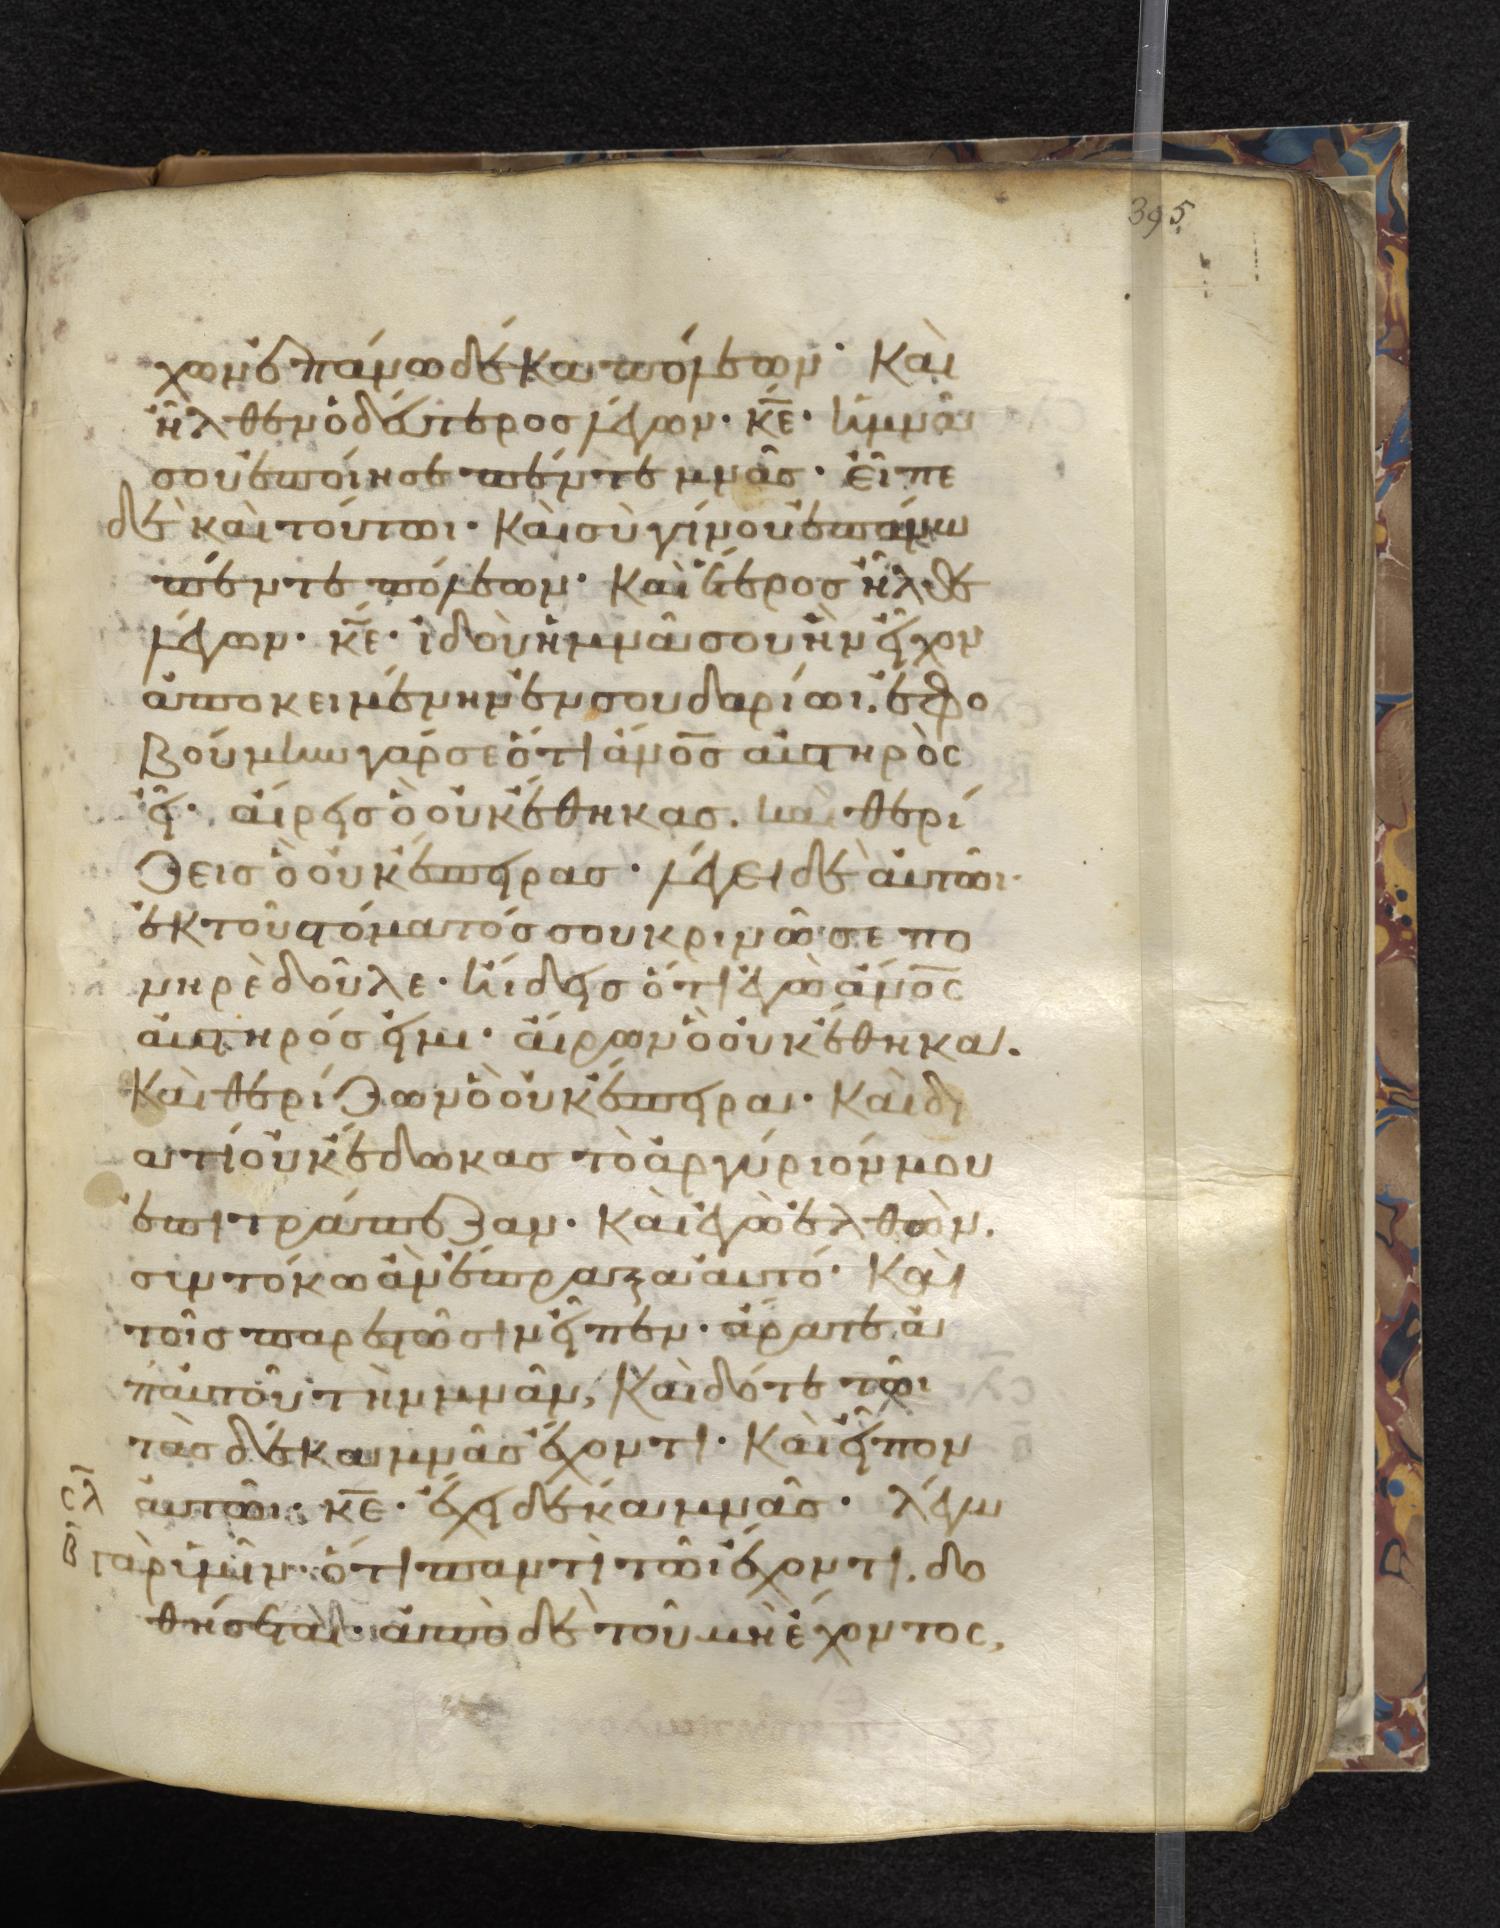 395
χων ἐπάνω δέκα πόλεων· Καὶ
ἦλθεν ὁ δεύτερος λέγων· κ̅ε̅· ἡ μνᾶ
σου ἐποίησε πέντε μνᾶς· εἶπε
δὲ καὶ τούτωι· Καὶ σὺ γίνου ἐπάνω
πέντε πόλεων· Καὶ ἕτερος ἦλθε
λέγων· κ̅ε̅· ἰδοὺ ἡ μνᾶ σου ἣν εἶχον
ἀποκειμένην ἐν σουδαρίωι. ἐφο
βούμην γάρ σε ὅτι ἄν̅ο̅ς̅ αὐστηρὸς
εἶ· αἴρεις ὃ οὐκ ἔθηκας. καὶ θερί
ζεις ὃ οὐκ ἔσπειρας· λέγει δὲ αὐτῶι·
ἐκ τοῦ στόματός σου κρινῶ σε πο
νηρὲ δοῦλε· ἤιδεις ὅτι ἐγὼ ἄν̅ο̅ς̅
αὐστηρός εἰμι· αἴρων ὃ οὐκ ἔθηκα.
Καὶ θερίζων ὃ οὐκ ἔσπειρα· Καὶ δι
ατί οὐκ ἔδωκας τὸ ἀργύριόν μου
ἐπι τράπεζαν· Καὶ ἐγὼ ἐλθὼν.
σὺν τόκω ἂν ἔπραξα αὐτό· Καὶ
τοῖς παρεστῶσιν εἶπεν· ἄρατε ἀ
π' αὐτοῦ τὴν μνᾶν, Καὶ δότε τῶι
τὰς δέκα μνᾶς ἔχοντι· Καὶ εἶπον
σλ αὐτῶι· κ̅ε̅· ἔχει δέκα μνᾶς· λέγω
β γὰρ ὑμῖν· ὅτι παντὶ τῶι ἔχοντι. δο
θήσεται· ἀπὸ δὲ τοῦ μὴ ἔχοντος,